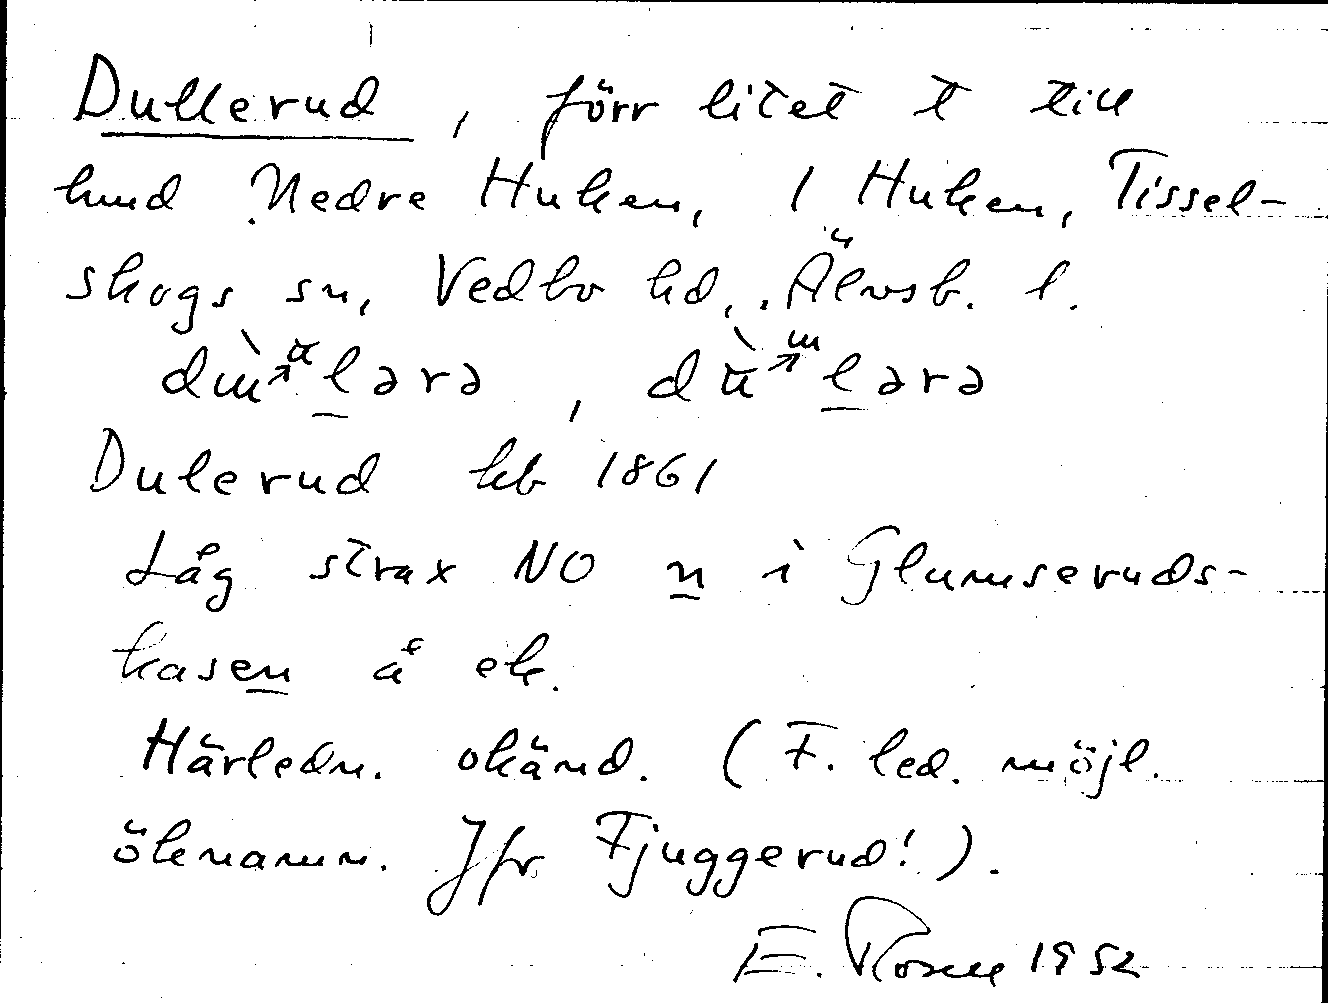 Dullerud, förr litet t till
hmd Nedre Huken, 1 Huken, Tissel-
skogs sn, Vedbo hd, Älvsb. l.
Dulerud hb 1861
Låg strax NO n i Glumseruds-
kasen å ek.
Härledn. okänd. (F. led. möjl.
öknamn. Jfr Fjuggerud!).
E. Rosell 1952